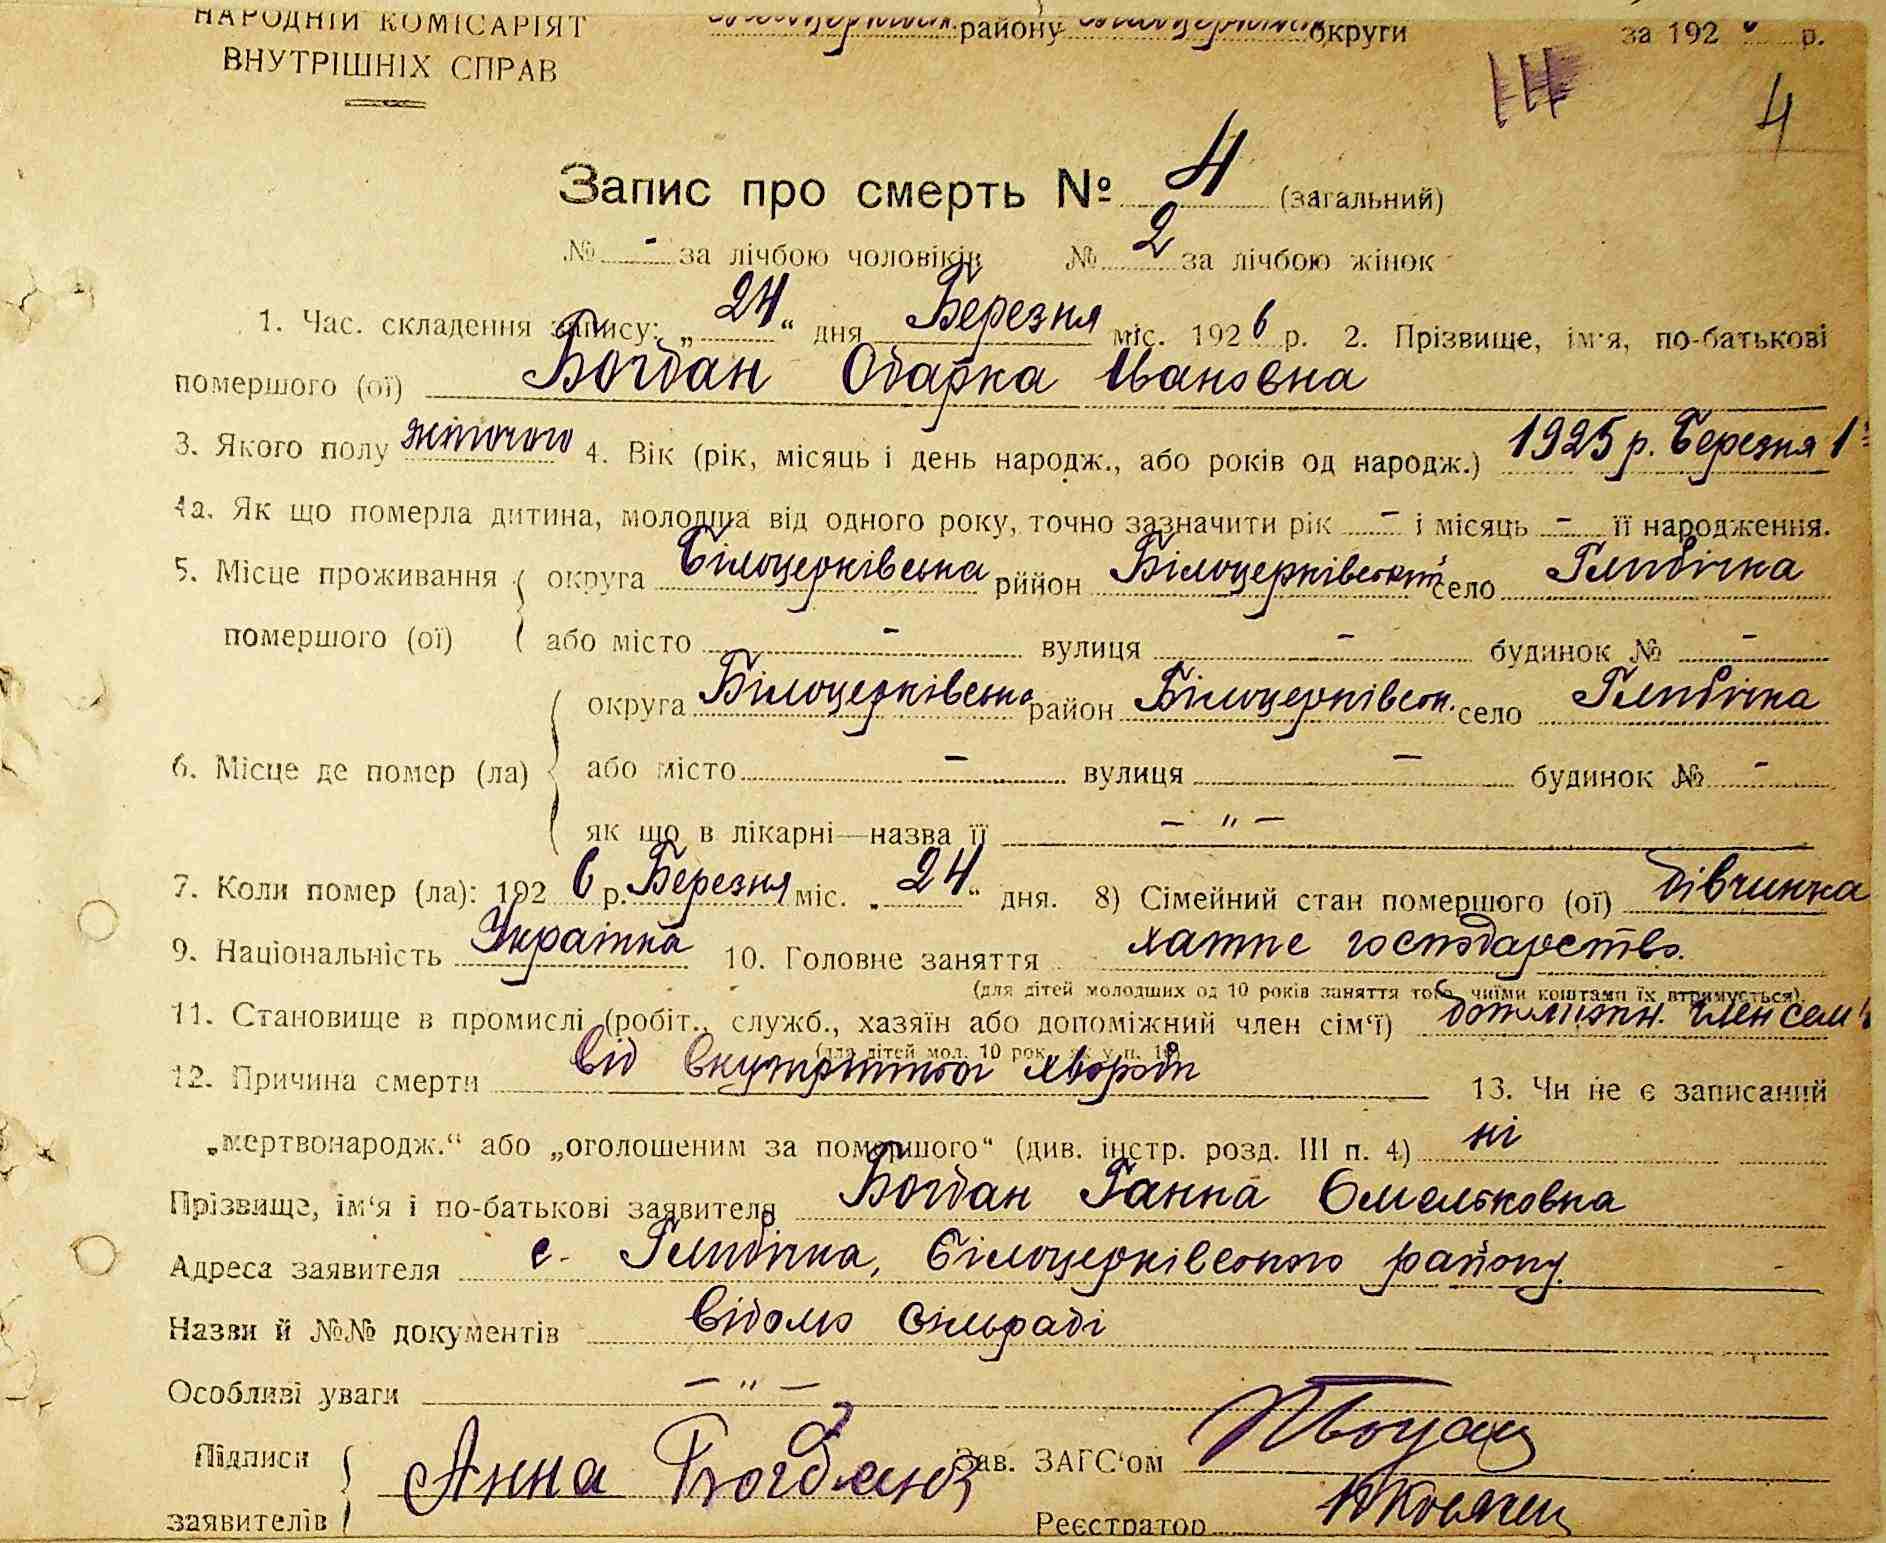 НАРОДНІЙ КОМІСАРІЯТ району округи за 192 р.
ВНУТРІШНІХ СПРАВ
4
Запис про смерть № 4 (загальний)
№ - за лічбою чоловіків № 2 за лічбою жінок
1. Час. складення запису: „24“ дня Березня міс. 1926 р. 2. Прізвище, ім'я, по-батькові
помершого (ої) Богдан Одарка Івановна
3. Якого полу жіночого 4. Вік (рік, місяць і день народж., або років од народж.) 1925 р. Березня 1
4а. Як що померла дитина, молодша від одного року, точно зазначити рік - і місяць - її народження.
5. Місце проживання округа Білоцерківська рййон Білоцерківський село Глибічка
помершого (ої) або місто - вулиця - будинок № -
округа Білоцерківська район Білоцерківськ. село Глибічка
6. Місце де помер (ла) або місто - вулиця - будинок № -
як що в лікарні—назва її - " -
7. Коли помер (ла): 1926 р. Березня міс. „24“ дня. 8) Сімейний стан помершого (ої) дівчинка
9. Національність Українка 10. Головне заняття хатнє господарство.
(для дітей молодших од 10 років заняття того, чиїми коштами їх втримується).
11. Становище в промислі (робіт., служб., хазяїн або допоміжний член сім‘ї) допоміжн. член сем
(для дітей мол. 10 рок. як у п. 10)
12. Причина смерти від внутрішньої хвороби 13. Чи не є записаний
„мертвонародж.“ або „оголошеним за помершого“ (див. інстр. розд. III п. 4) ні
Прізвище, ім‘я і по-батькові заявителя Богдан Ганна Омельковна
Адреса заявителя с. Глибічка, Білоцерківського району.
Назви й №№ документів Відомо сільраді
Особливі уваги - " -
Підписи Анна Богданъ Зав. ЗАГС‘ом
заявителів Реєстратор